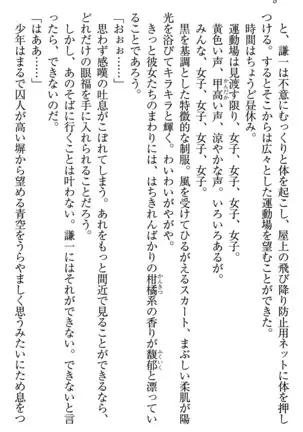 と、謙一は不意にむっくりと体を起こし、屋上の飛び降り防止用ネットに体を押し
つける。するとそこからは広々とした運動場を望むことができた。
時間はちょうど昼休み。
運動場は見渡す限り、女子、女子、女子、女子。
黄色い声、甲高い声、涼やかな声。いろいろあるが。
みんな、女子、女子、女子、女子、女子。
黒を基調とした特徴的な制服。風を受けてひるがえるスカート、まぶしい柔肌が陽
光を浴びてキラキラと輝く。わいわいがやがや。
きっと彼女たちのまわりには、はちきれんばかりの柑橘系の香りが馥郁と漂ってい
ることであろう。
「おぉぉ……」
思わず感嘆の吐息がこぼれてしまう。あれをもっと間近で見ることができるなら、
どれだけの眼福を手に入れられることだろう。
しかし、あのそばに行くことは叶わない。謙一にはそれができない。できないと言
ったら、できないのだ。
「はああ……」
少年はまるで囚人が高い塀から望める青空をうらやましく思うみたいにため息をつ